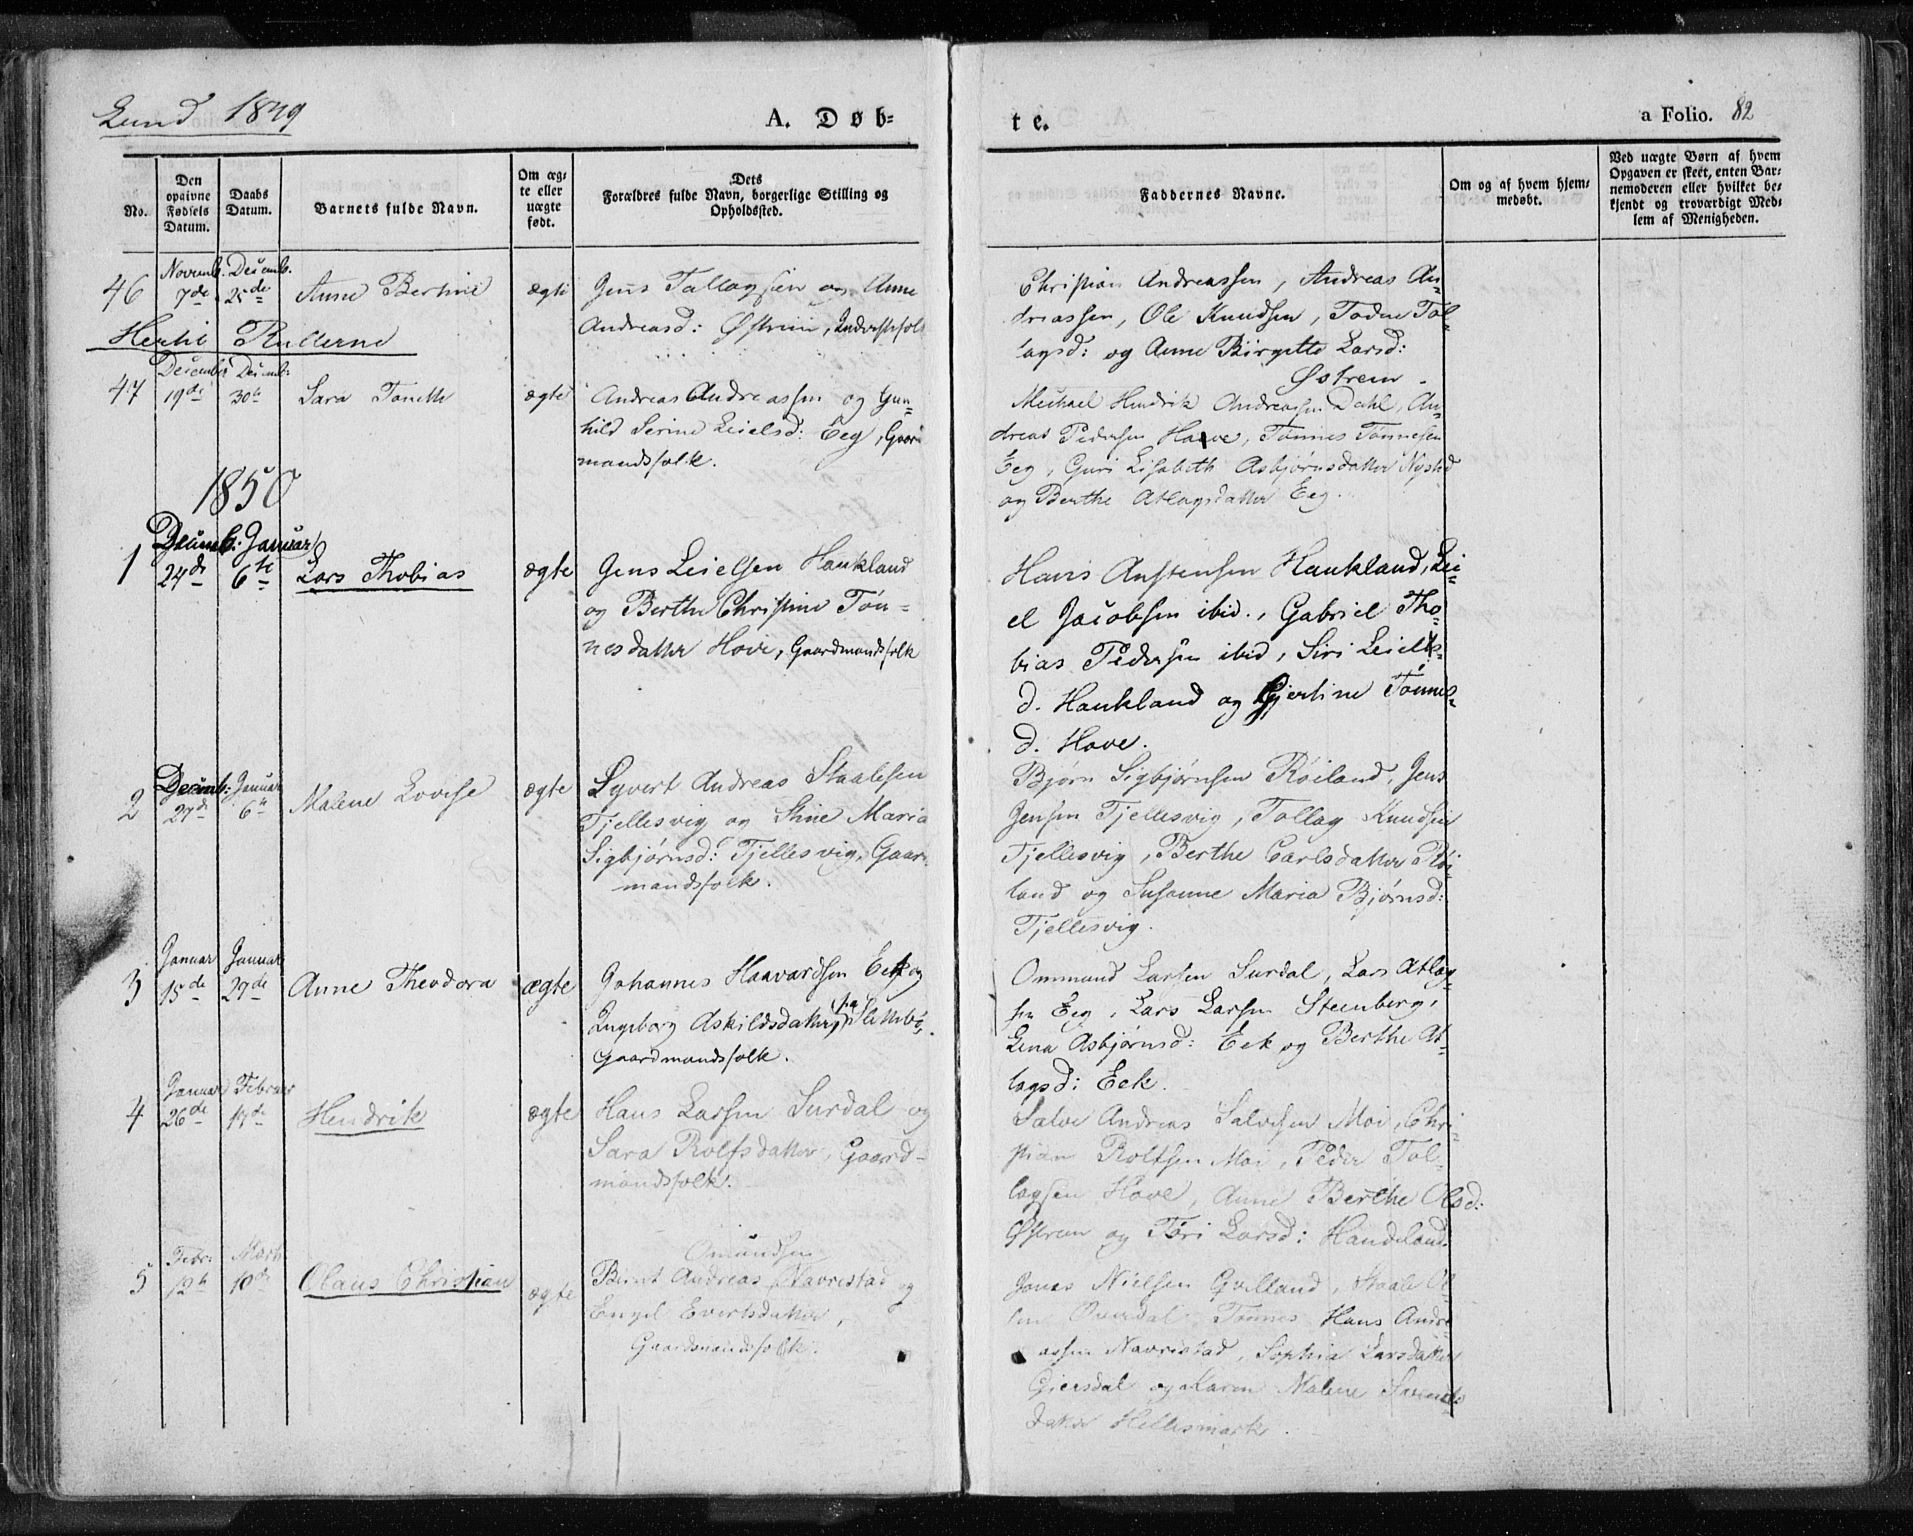 Lund 1849
A. Døb-
te.
a Folio. 82
No.
Den
opgivne
Fødsels
Datum.
Daabs
Datum.
Barnets fulde Navn.
Om æg-
te eller
uægte
født.
Dets
Forældres fulde Navn, borgerlige Stilling og
Opholdssted.
Faddernes Navne.
Om og af hvem hjem-
medøbt.
Ved uægte Børn af hvem
Opgaven er skeet, enten Bar-
nemoderen eller hvilket be-
kjendt og troværdigt Med-
lem af Menigheden.
46
Novemb.
7de
Decemb.
25de
Anne Bertine
ægte
Jens Tallagsen og Anne
Andreasd: Østrem,
Christian Andreassen, Andreas An-
dreassen, Ole Knudsen, Tol-
lagsd: og Anne Birgitte Larsd:
Østrem.
47
December
19de
Decemb:
30te
Sara Tonette
ægte
Andreas Andreassen og Gun-
hild Serine Leielsd: Eeg, Gaard
mandsfolk.
Michael Hendrik Andreassen Dahl, An-
dreas Pedersen Hove, Tønnes Tønnesen
Eeg, Guri Lisabeth Asbjørnsdatter Nysted
og Berthe Atlagsdatter Eeg.
1850
1
Decemb:
24de
Januar
6te
Lars Thobias
ægte
Jens Leielsen Haukland
og Berthe Christine Tøn-
nesdatter Hove, Gaardmandsfolk
Hans Anstensen Haukland, Lei-
el Jacobsen ibid., Gabriel Tho-
bias Pedersen ibid, Siri Leiels-
d. Haukland og Gjertine Tønnes-
d. Hove.
2
Decemb:
27de
Januar
6te
Malene Lovise
ægte
Syvert Andreas Staalesen
Tjellesvig og Stine Maria
Sigbjørnsd: Tjellesvig, Gaard
mandsfolk.
Bjørn Sigbjørnsen Røiland, Jens
Jensen Tjellesvig, Tollag Knudsen
Tjellesvig, Berthe Carlsdatter Røi-
land og Susanne Maria Bjørnsd:
Tjellesvig.
3
Januar
15de
Januar
27de
Anne Theodora
ægte
Johannes Haavardsen Eek og
Ingeborg Askildsdatter, fra Slettebø,
Gaardmandsfolk.
Ommund Larsen Surdal, Lars Atlag-
sen Eeg, Lars Larsen Steenberg,
Lena Asbjørnsd: Eek og Berthe At-
lagsd: Eek.
4
Januar
26de
Februar
17de
Hendrik
ægte
Hans Larsen Surdal og
Sara Rolfsdatter, Gaard-
mandsfolk.
Salve Andreas Salvesen Moi, Chri-
stian Rolfsen Moi, Peder Tol-
lagsen Hove, Anne Berthe Olsd:
Østrem og Tøri Larsd: Handeland.
5
Febr:
12te
Marts
10de
Olaus Christian
ægte
Omundsen
Bernt Andreas Navrestad og
Engel Evertsdatter,
Gaardmandsfolk.
Jonas Nielsen Qvelland, Staale Ol-
sen Tønnes Hans Andre-
assen Navrestad, Sophia Larsdatter
Gjersdal og Karen Malene Svends-
datter